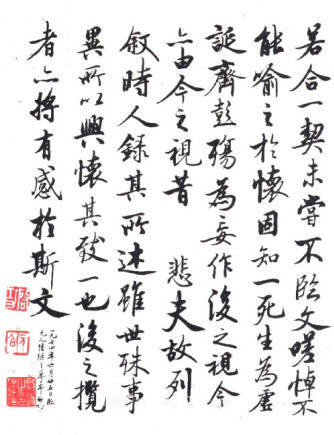 若合一契未嘗不臨文嗟悼不
能喻之於懷固知一死生為虛
誕齊彭殤為妄作後之視今
亦由今之視昔 悲夫故列
敘時人錄其所述雖世殊事
異所以興懷其致一也後之攬
者亦將有感於斯文
一九七四年六月廿五日臨
元人陸繼之